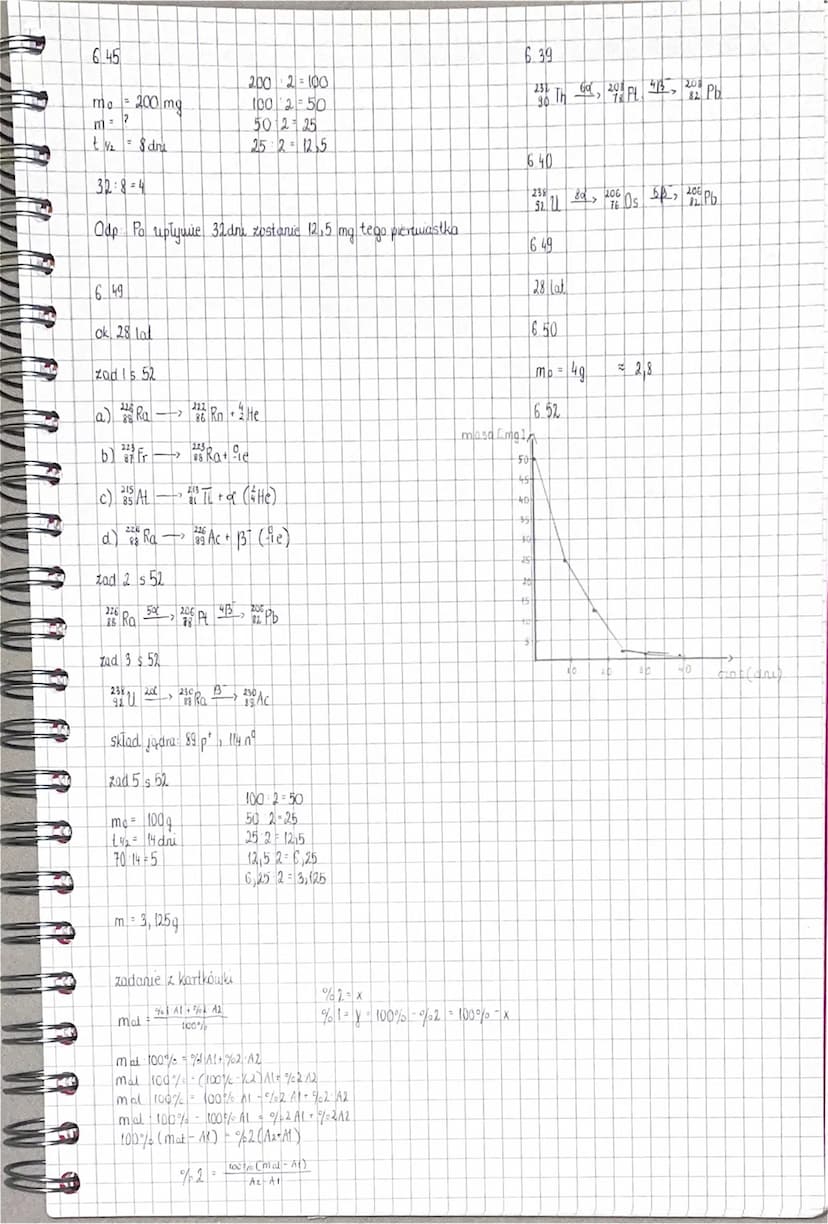 6.45
m₀ = 200 mg
m = ?
t 1/2 = 8 dni
200 : 2 = 100
100 : 2 = 50
50 : 2 = 25
25 : 2 = 12,5
32 : 8 = 4
Odp: Po upływie 32 dni zostanie 12,5 mg tego pierwiastka
6.49
ok. 28 lat
zad 1 s 52
a) ²²⁶₈₈Ra → ²²²₈₆Rn + ⁴₂He
b) ²²³₈₇Fr → ²²³₈₈Ra + ⁰₋₁e
c) At → Tl + α (He)
d) Ra → Ac + β⁻ (e)
zad 2 s 52
²²⁶₈₈Ra 5α → Pt 4β⁻ → ²⁰⁶₈₂Pb
zad 3 s 52
²³⁸₉₂U 2α → ²³⁰₈₈Ra β⁻ → ²³⁰₈₉Ac
skład jądra: 89 p⁺, 114 n⁰
zad 5 s 52
m₀ = 100g
t 1/2 = 14 dni
70 : 14 = 5
100 : 2 = 50
50 : 2 = 25
25 : 2 = 12,5
12,5 : 2 = 6,25
6,25 : 2 = 3,125
m = 3,125g
zadanie z kartkówki
mat = %1 · A1 + %2 · A2 / 100%
%2 = x
%1 = y = 100% - %2 = 100% - x
mat · 100% = %1 A1 + %2 · A2
mat · 100% = (100% - %2) A1 + %2 A2
mat · 100% = 100% A1 - %2 A1 + %2 · A2
mat · 100% - 100% A1 = %2 A1 + %2 A2
100% (mat - A1) = %2 (A2+A1)
%2 = 100% (mat - A1) / A2 - A1
6.39
Th 6α → ²⁰⁸₇₈Pt 4β⁻ → ²⁰⁸₈₂Pb
6.40
U 8α → ²⁰⁶₇₆Os 6β⁻ → ²⁰⁶₈₂Pb
6.49
28 lat
6.50
m₀ = 4g ≈ 2,8
6.52
masa [mg]
50
45
40
35
30
25
20
15
10
5
10 20 30 40 czas (dni)